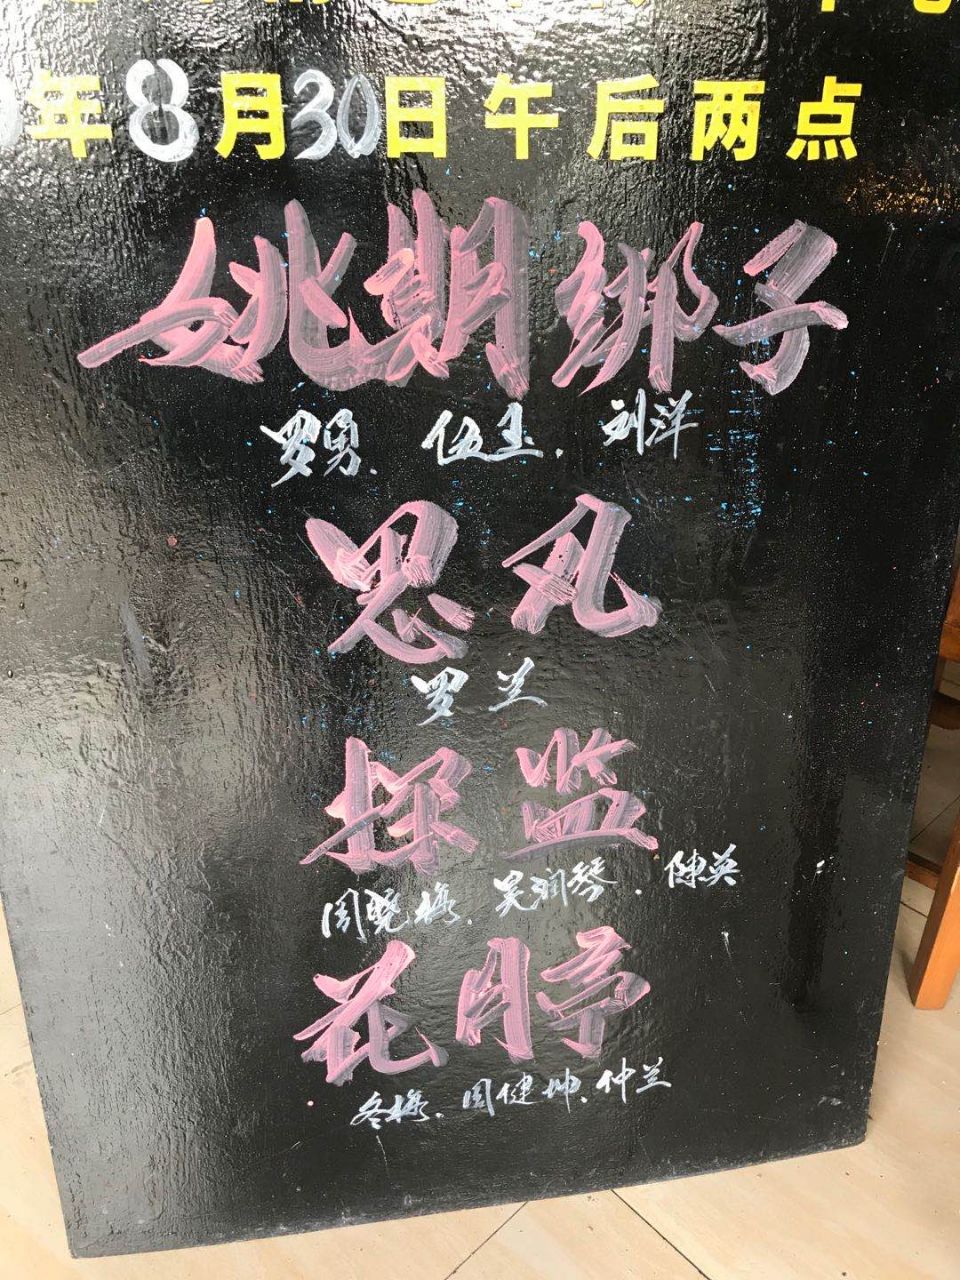 年8月30日午后两点
姚期绑子
罗勇、伍玉、刘洋
思凡
罗兰
探监
周晓梅、吴润琴、陈英
花月亭
冬梅、周健坤、仲兰